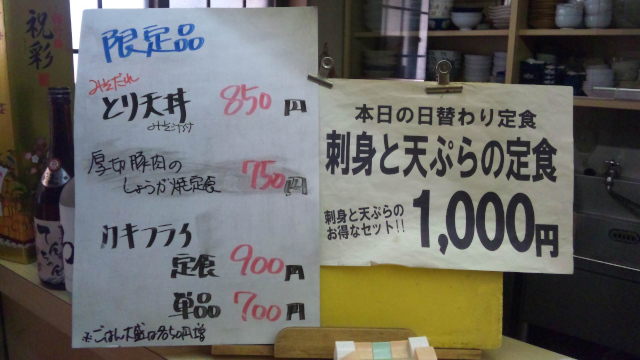 祝彩
限定品
みそだれ
とり天丼 850円
みそ汁付
厚切豚肉の
しょうが焼定食 750円
カキフライ
定食 900円
単品 700円
※ごはん大盛は各50円増
本日の日替わり定食
刺身と天ぷらの定食
刺身と天ぷらの
お得なセット!! 1,000円